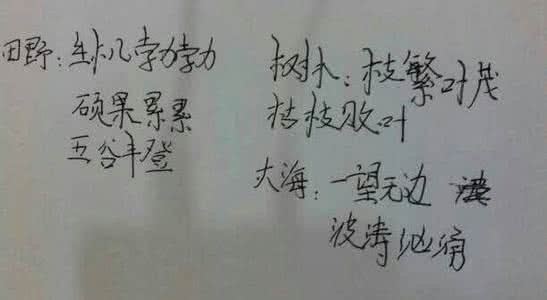 田野：生机勃勃
硕果累累
五谷丰登
树木：枝繁叶茂
枯枝败叶
大海：一望无边
波涛汹涌